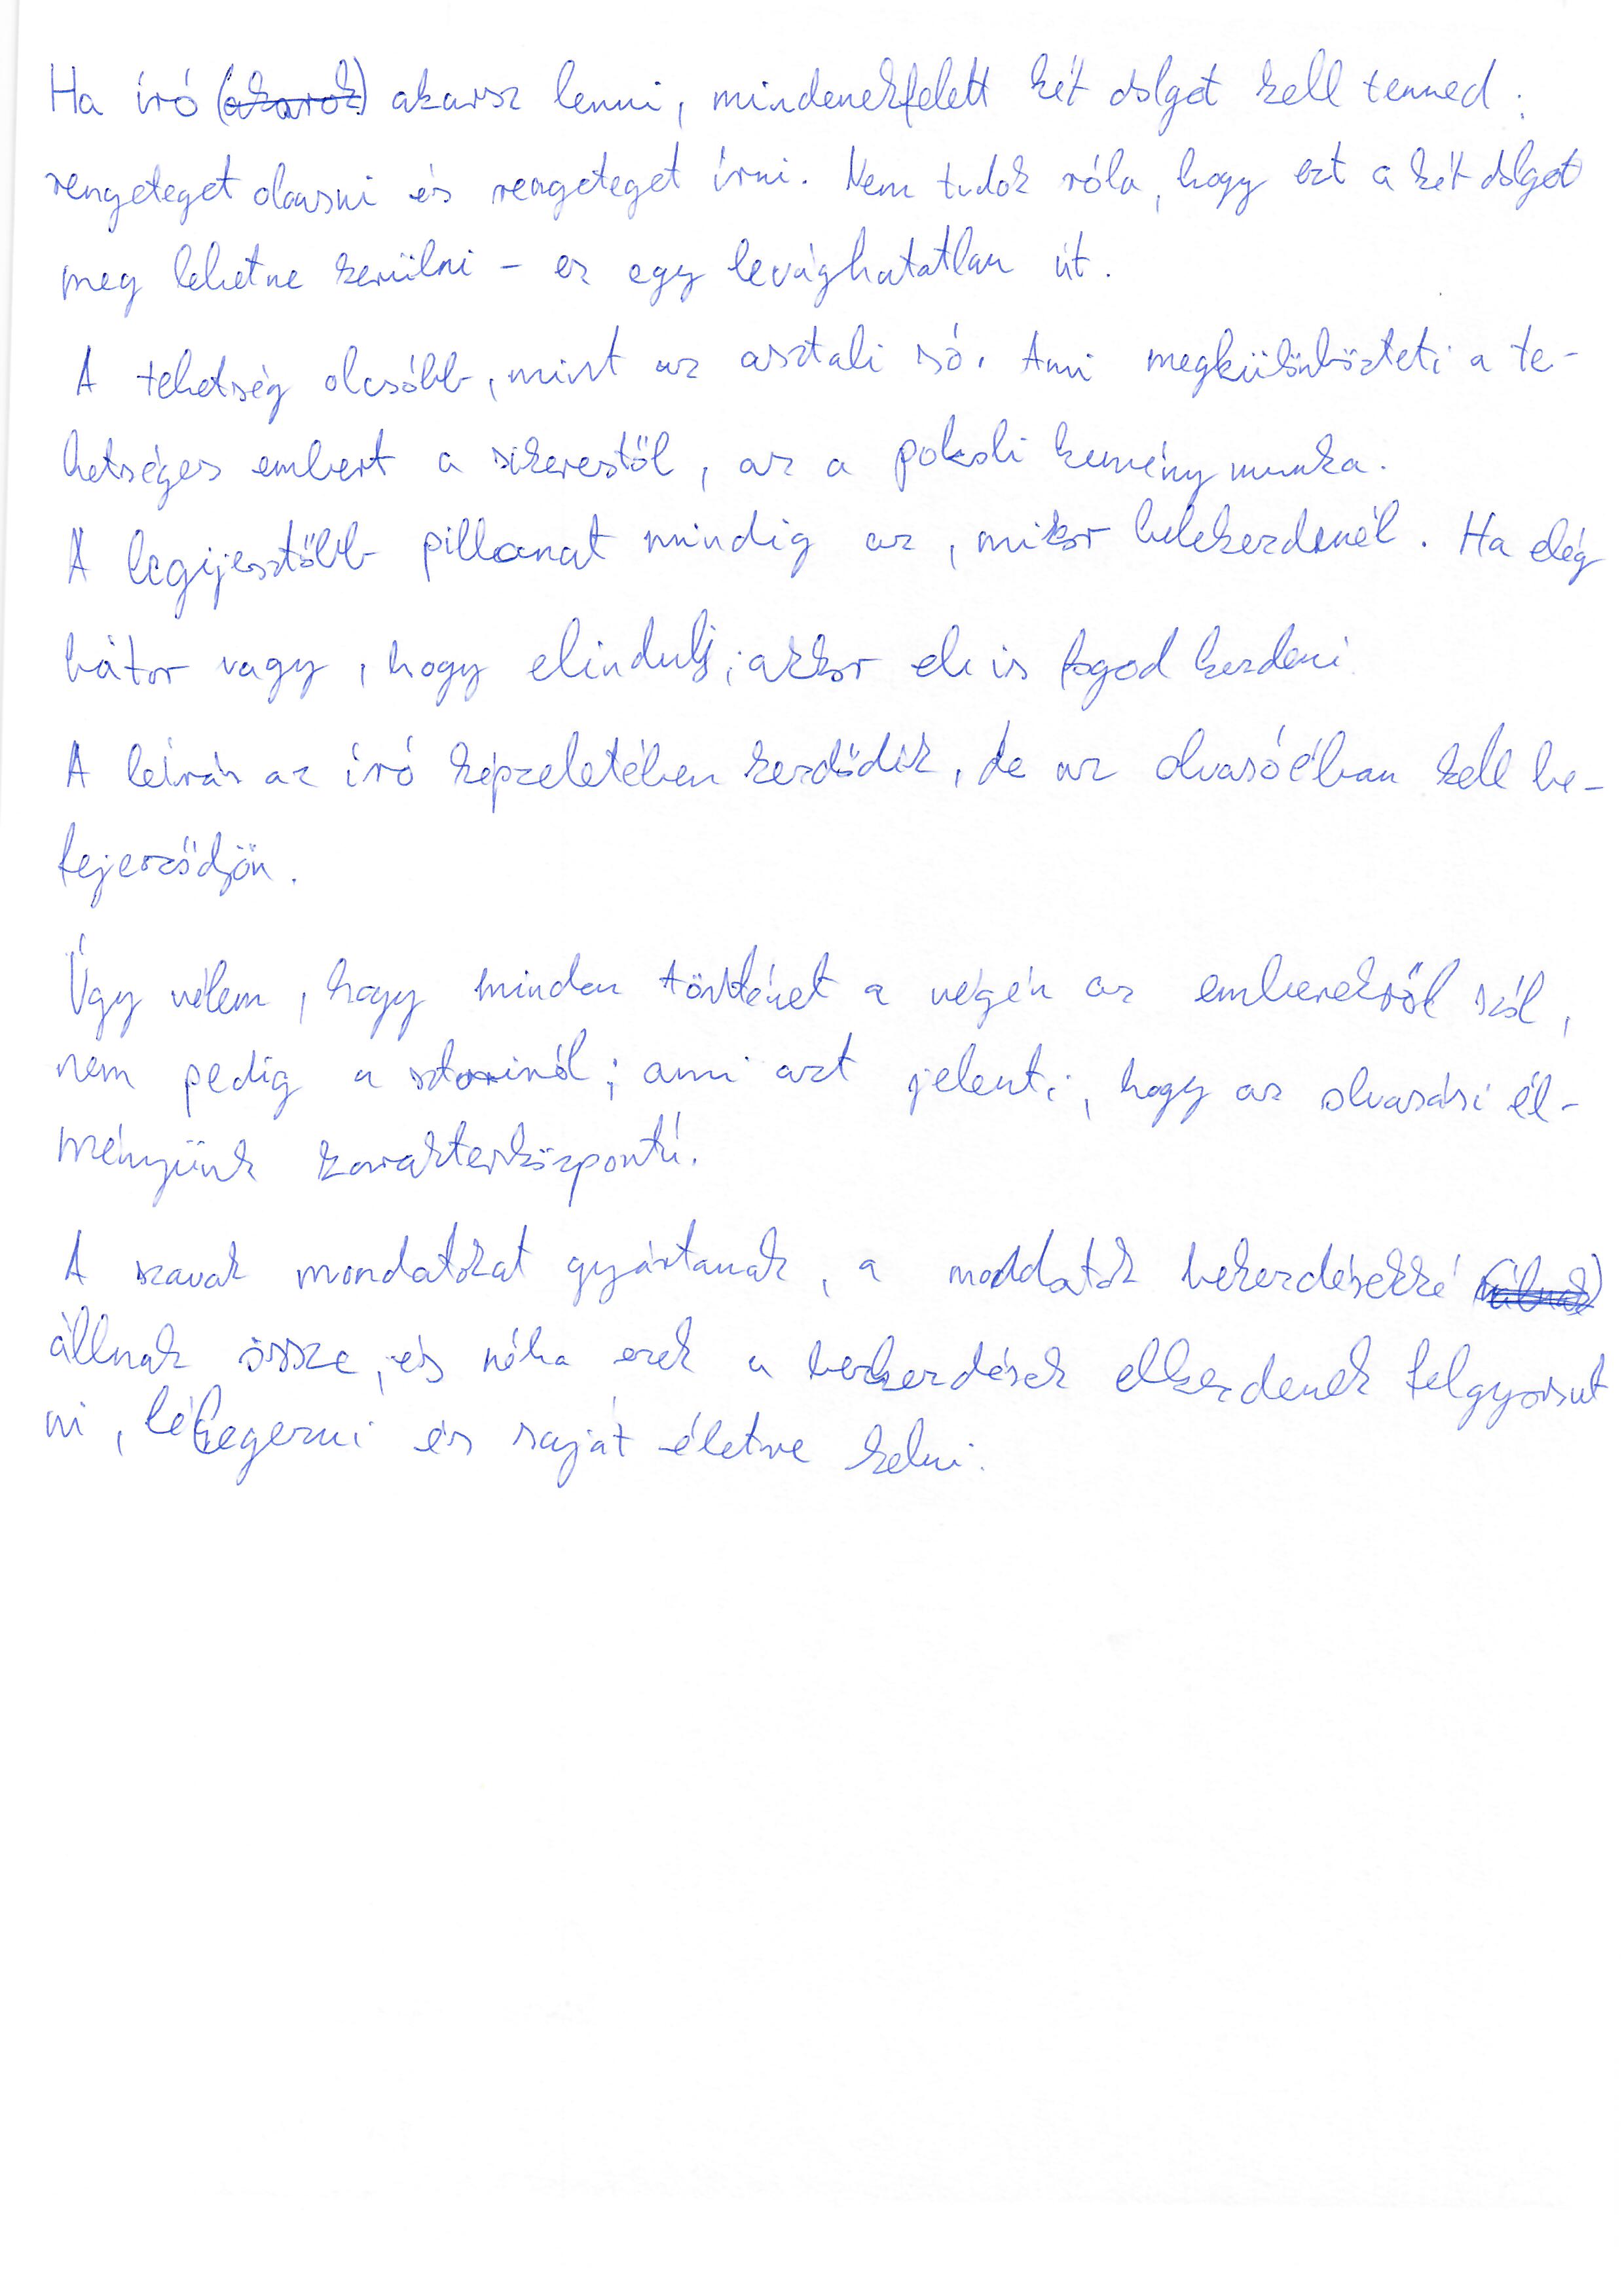 Ha író (akarok) akarsz lenni, mindenekfelett két dolgot kell tenned:
rengeteget olvasni és rengeteget írni. Nem tudok róla, hogy ezt a két dolgot
meg lehetne kerülni - ez egy levághatatlan út.
A tehetség olcsóbb, mint az asztali só. Ami megkülönbözteti a te-
hetséges embert a sikerestől, az a pokoli kemény munka.
A legijesztőbb pillanat mindig az, mikor belekezdenél. Ha elég
bátor vagy, hogy elindulj, akkor el is fogod kezdeni.
A leírás az író képzeletében kezdődik, de az olvasóéban kell be-
fejeződjön.
Úgy vélem, hogy minden történet a végén az emberekről szól,
nem pedig a sztoriról; ami azt jelenti, hogy az olvasási él-
ményünk karakterközpontú.
A szavak mondatokat gyártanak, a mondatok bekezdésekké (válnak)
állnak össze, és néha ezek a bekezdések elkezdenek felgyorsul
ni, lélegezni és saját életre kelni.